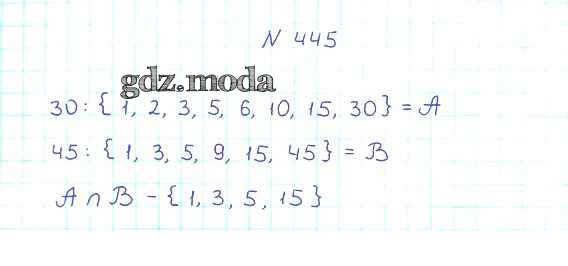 N 445
gdz.moda
30: { 1, 2, 3, 5, 6, 10, 15, 30 } = A
45: { 1, 3, 5, 9, 15, 45 } = B
A ∩ B - { 1, 3, 5, 15 }